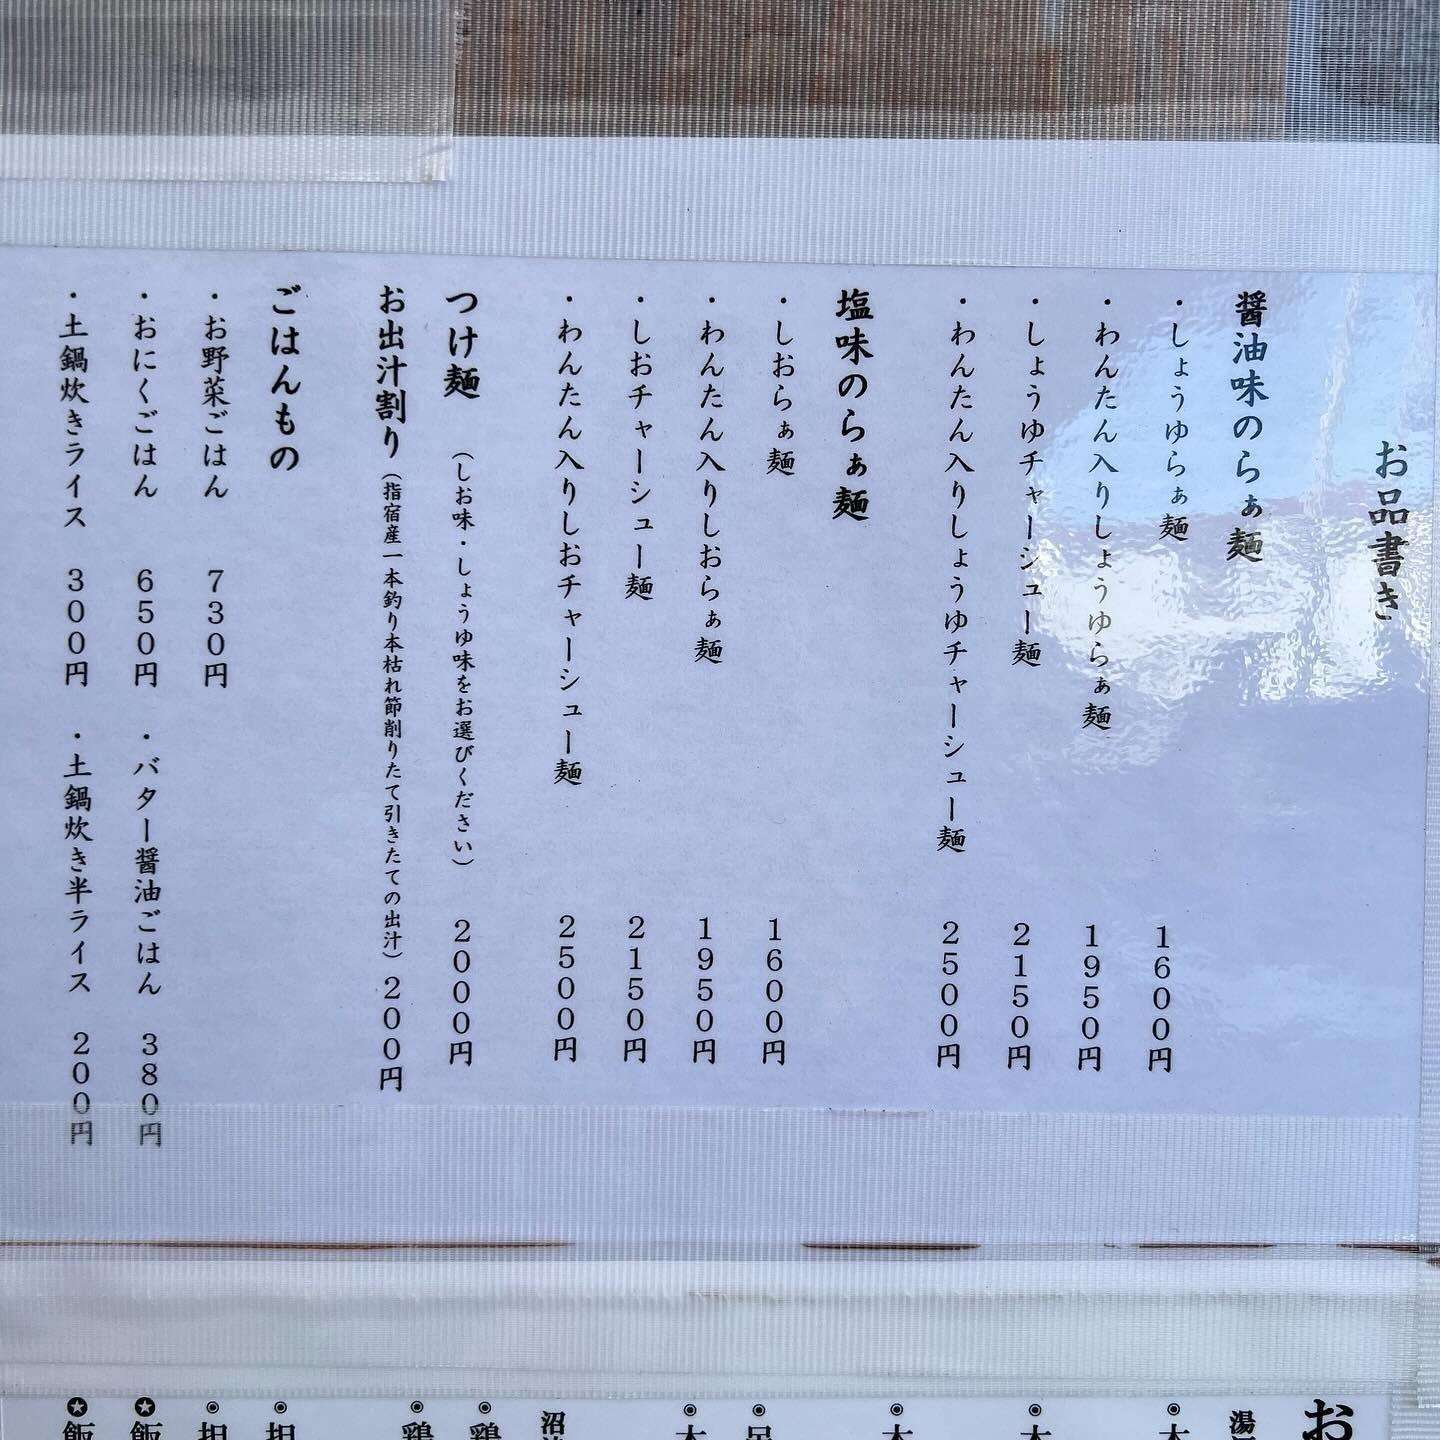 お品書き
醤油味のらぁ麺
・しょうゆらぁ麺 1600円
・わんたん入りしょうゆらぁ麺 1950円
・しょうゆチャーシュー麺 2150円
・わんたん入りしょうゆチャーシュー麺 2500円
塩味のらぁ麺
・しおらぁ麺 1600円
・わんたん入りしおらぁ麺 1950円
・しおチャーシュー麺 2150円
・わんたん入りしおチャーシュー麺 2500円
つけ麺 (しお味・しょうゆ味をお選びください) 2000円
お出汁割り(指宿産一本釣り本枯れ節削りたて引きたての出汁) 200円
ごはんもの
・お野菜ごはん 730円
・おにくごはん 650円 ・バター醤油ごはん 380円
・土鍋炊きライス 300円 ・土鍋炊き半ライス 200円
お
湯